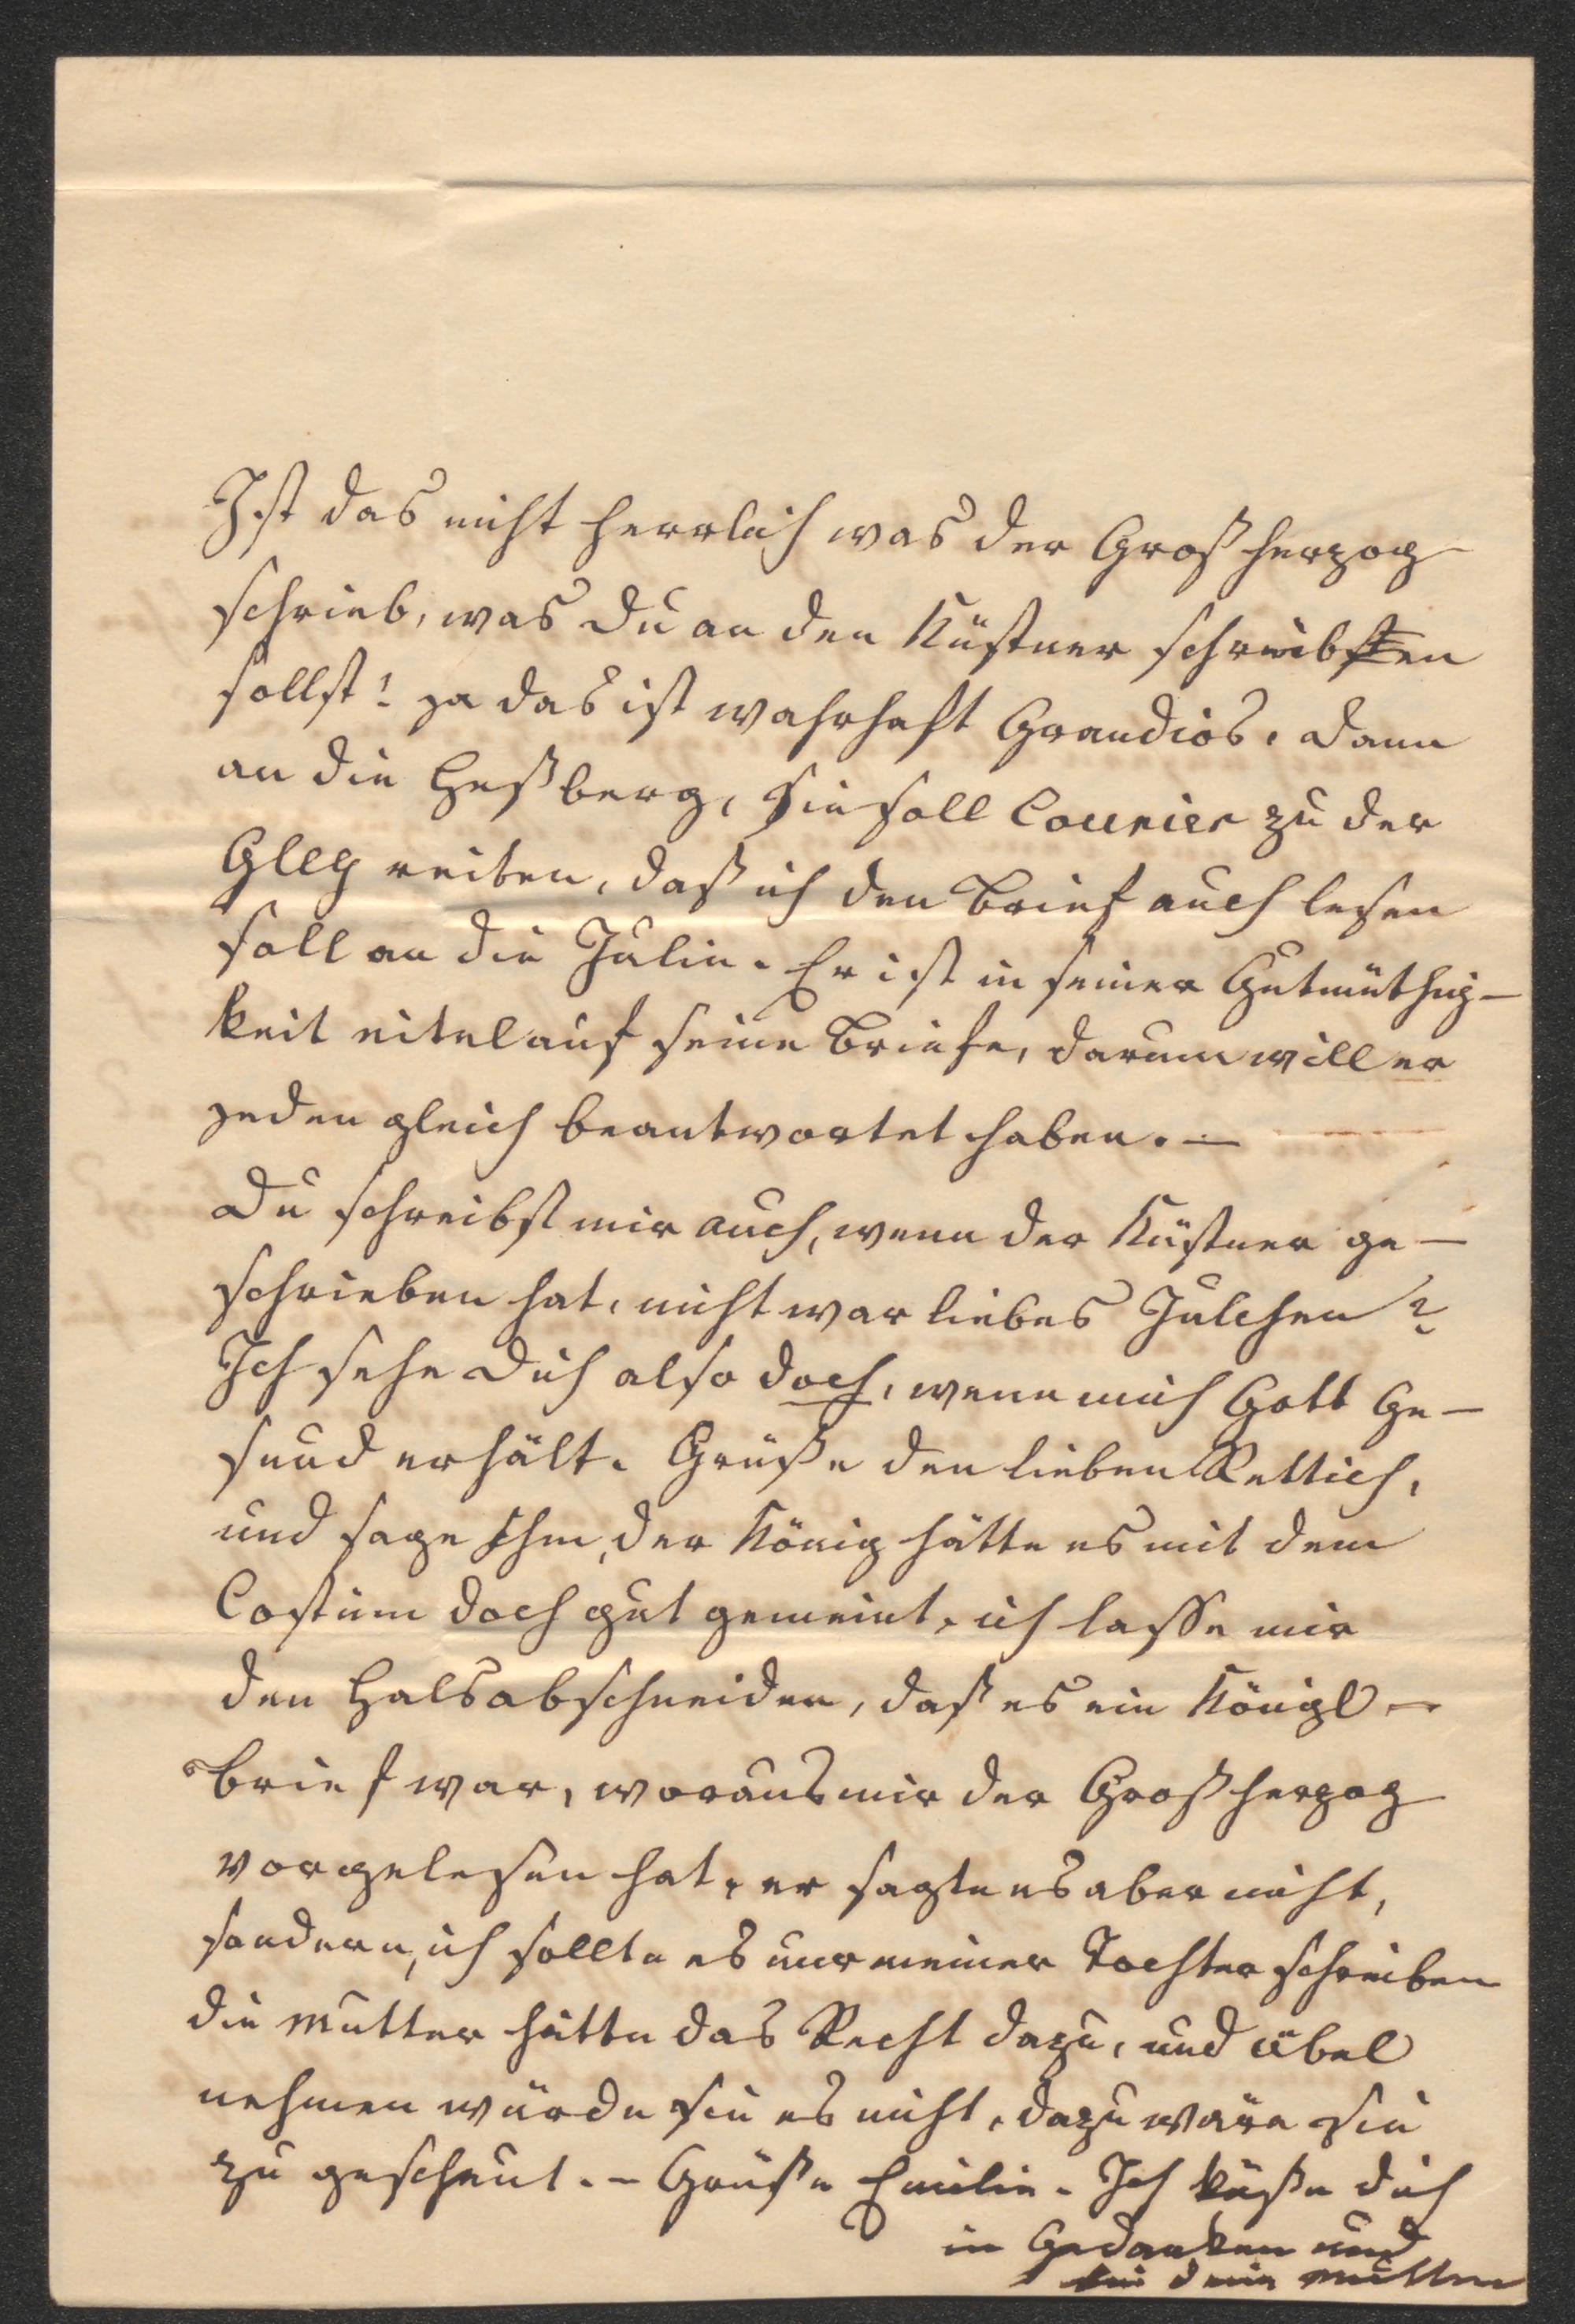 Ist das nicht herrlich was der Großherzog
schrieb, was Du an den Küstner schreiben
sollst! ja das ist wahrhaft Grandios. Dann
an die Heßberg, sie soll Courier zu der
Gley reiten, daß ich den Brief auch lesen
soll an die Julie. Er ist in seiner Gutmüthig-
keit eitel auf seine Briefe, darum will er
jeden gleich beantwortet haben. —
Du schreibst mir auch, wenn der Küstner ge-
schrieben hat, nicht war liebes Julchen?
Ich sehe Dich also doch, wenn mich Gott Ge-
sund erhält. Grüße den lieben Rettich,
und sage Ihm, der König hätte es mit dem
Costüm doch gut gemeint, ich lasse mir
den Halsabschneiden, daß es ein Königl-
brief war, woraus mir der Großherzog
vorgelesen hat, er sagte es aber nicht,
sondern, ich sollte es nur meiner Tochter schreiben
die Mutter hätte das Recht dazu, und übel
nehmen würde sie es nicht, dazu wäre sie
zu gescheut. - Grüße Emilie. Ich küße dich
in Gedanken und
bin deine Mutter